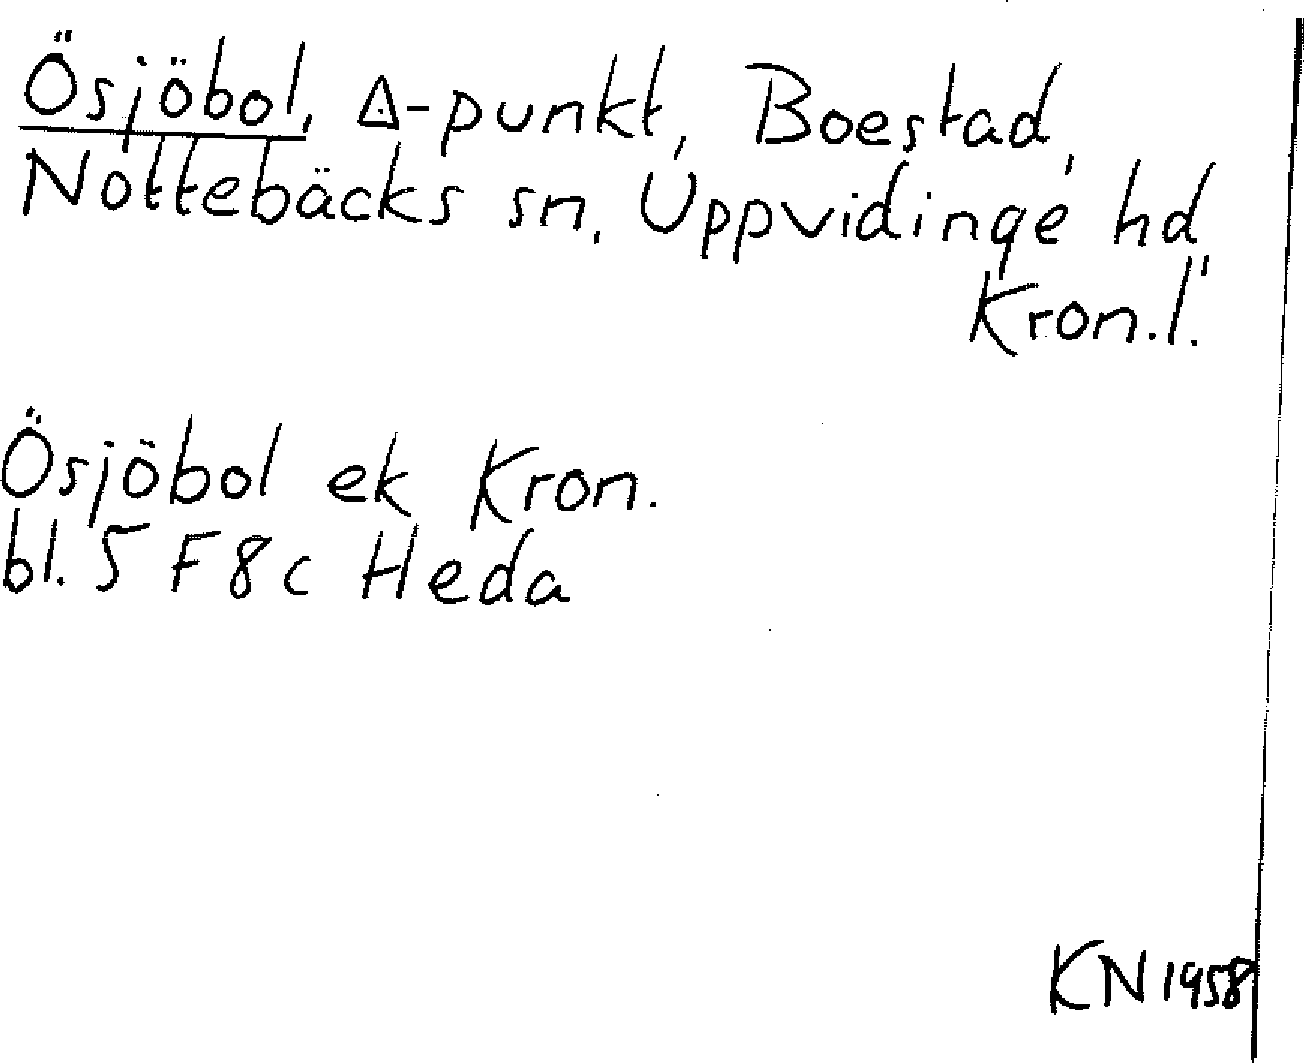 Ösjöbol, Δ-punkt, Boestad,
Nottebäcks sn, Uppvidinge hd,
Kron.l.
Ösjöbol ek Kron.
bl. 5 F 8 c Heda
KN 1958